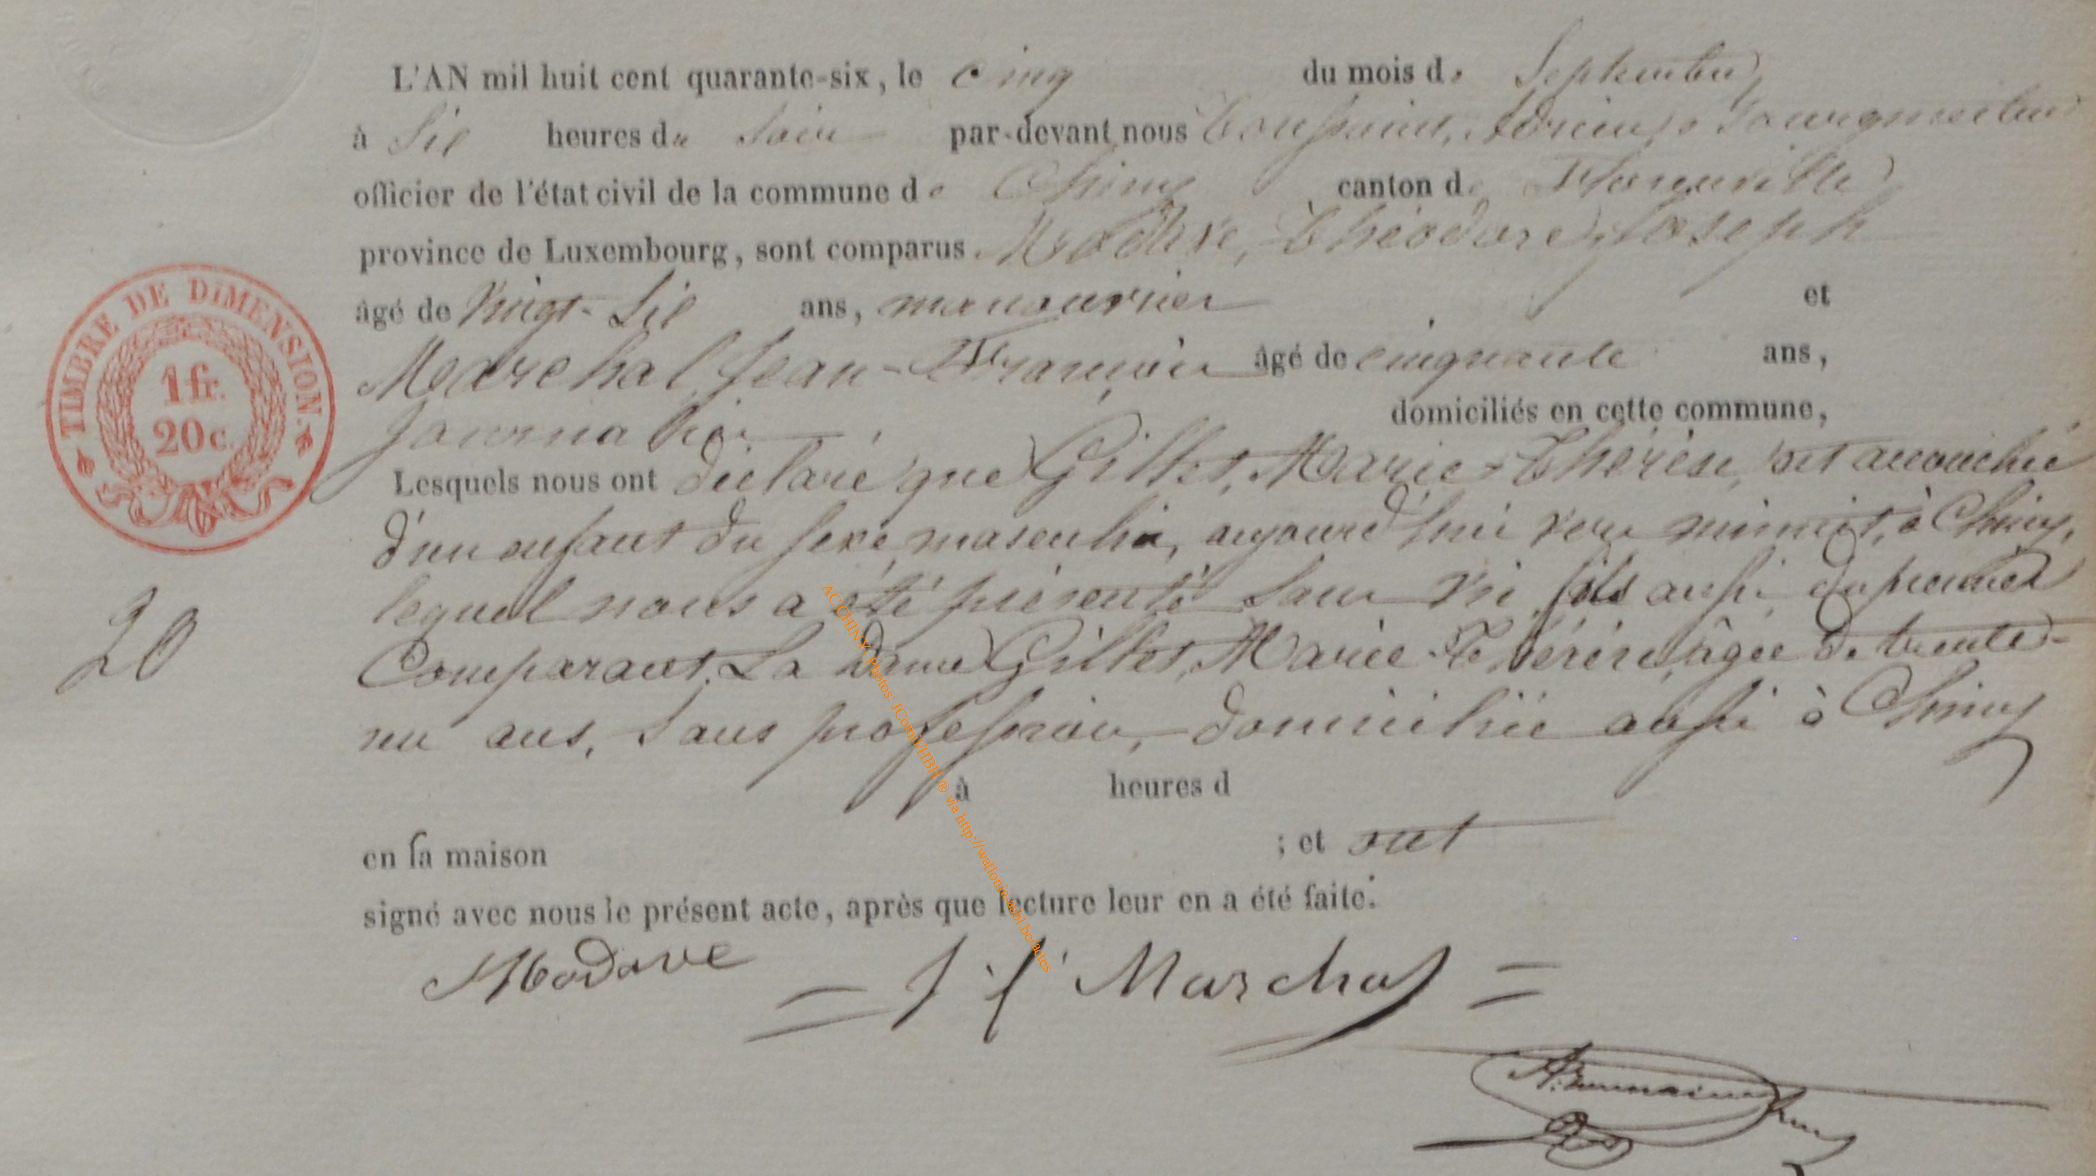 L'AN mil huit cent quarante-six, le cinq du mois de Septembre,
à Six heures du Soir par-devant nous Toussaint, Adrien, Bourgmestre
officier de l'état civil de la commune de Chiny canton de Florenville
province de Luxembourg, sont comparus Modave, Théodore, Joseph
âgé de vingt-Six ans, manouvrier et
Marechal, Jean-François âgé de cinquante ans,
Journalier domiciliés en cette commune,
Lesquels nous ont déclaré que Gillet, Marie-Thérèse, est accouchée
d'un enfant du sexe masculin, aujourd'hui vers minuit, à Chiny,
lequel nous a été présenté sans vie, fils aussi du premier
Comparant. La Dame Gillet, Marie-Thérèse, âgée de trente-
un ans, Sans profession, domiciliée aussi à Chiny
à heures d
en sa maison ; et ont
signé avec nous le présent acte, après que lecture leur en a été faite.
Modave = J f Marchal =
TIMBRE DE DIMENSION.
1 fr.
20 c.
20